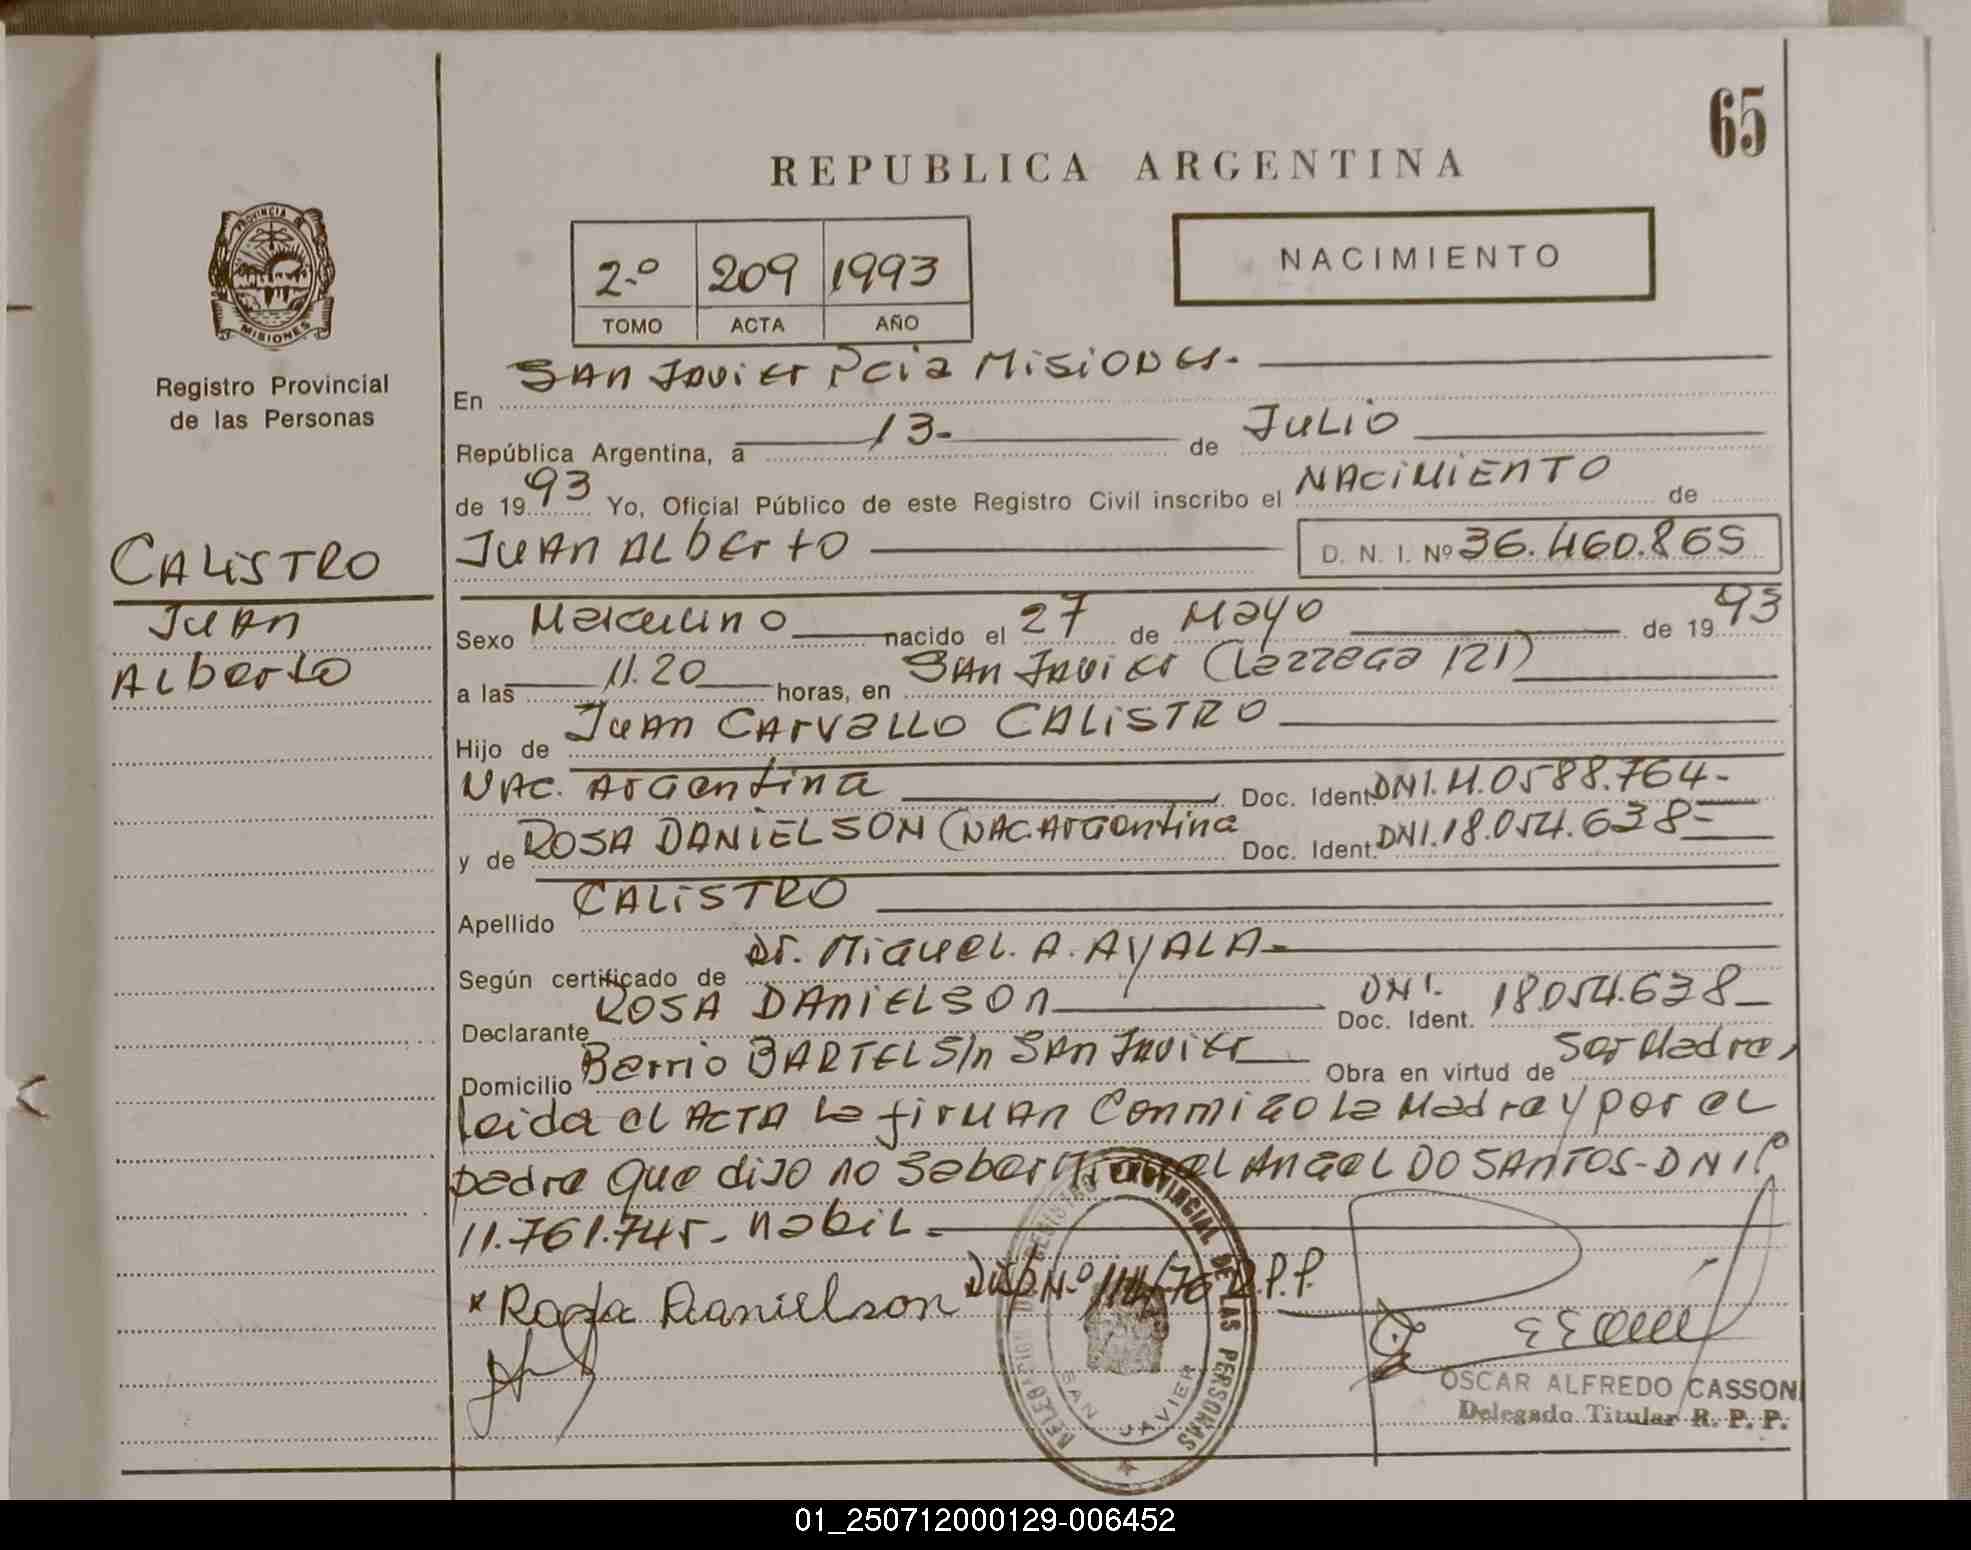 65
REPUBLICA ARGENTINA
PROVINCIA DE
MISIONES
Registro Provincial
de las Personas
2º 209 1993
TOMO ACTA AÑO
NACIMIENTO
En SAN JAVIER Pcia MISIONES.-
República Argentina, a 13- de JULIO
de 1993 Yo, Oficial Público de este Registro Civil inscribo el NACIMIENTO de
CALISTRO
JUAN
ALBERTO
JUAN ALBERTO D. N. I. Nº 36.460.865
Sexo Masculino nacido el 27 de Mayo de 1993
a las 11.20 horas, en SAN JAVIER (Lezzega 121)
Hijo de JUAN CARVALLO CALISTRO
NAC. Argentina Doc. Ident. DNI.M.0588.764-
y de ROSA DANIELSON (NAC.Argentina Doc. Ident. DNI.18.054.638-
Apellido CALISTRO
Según certificado de Dr. Miguel. A. AYALA-
Declarante ROSA DANIELSON Doc. Ident. DNI. 18.054.638-
Domicilio Barrio BARTEL S/n SAN JAVIER Obra en virtud de Ser Madre,
leida el ACTA la firman Conmigo la Madre y por el
padre que dijo no saber Miguel Angel DO SANTOS-DNI.º
11.761.745- habil.-
Disp.N.º 114/76 R.P.P.
Rosa Danielson
DELEGACION DEL REGISTRO PROVINCIAL DE LAS PERSONAS
SAN JAVIER
OSCAR ALFREDO CASSONI
Delegado Titular R. P. P.
01_250712000129-006452